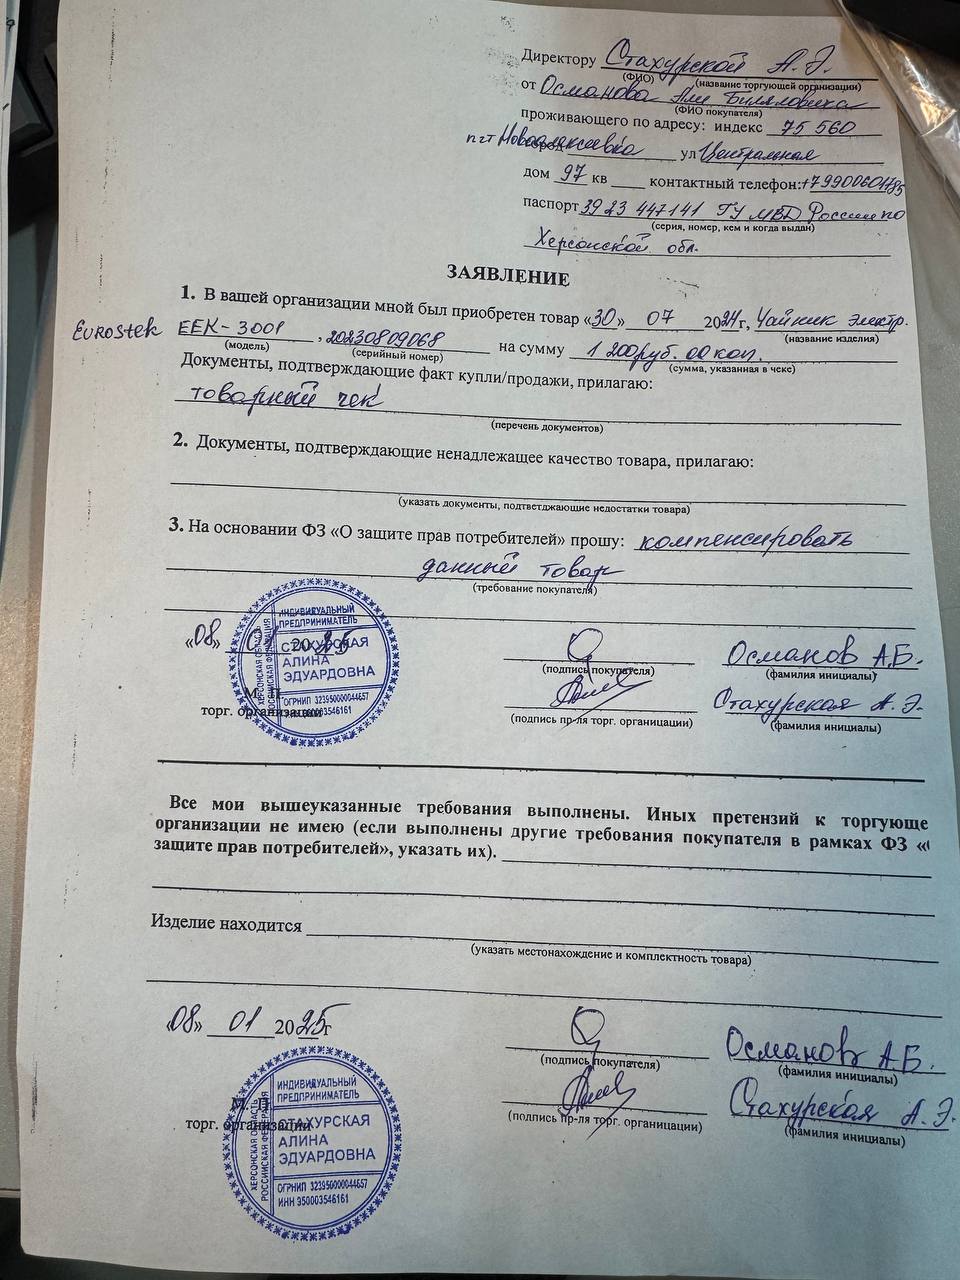 Директору Стахурской А. Э.
(ФИО) (название торгующей организации)
от Османова Али Биляловича
(ФИО покупателя)
проживающего по адресу: индекс 75 560
пгт Новоалексеевка ул Центральная
дом 97 кв ____ контактный телефон: +79900601785
паспорт 39 23 447141 ГУ МВД России по
(серия, номер, кем и когда выдан)
Херсонской обл.
ЗАЯВЛЕНИЕ
1. В вашей организации мной был приобретен товар «30» 07 2024г, Чайник электр.
(название изделия)
Eurostek EEK-3001, 20230809068 на сумму 1 200руб. 00 коп.
(модель) (серийный номер) (сумма, указанная в чеке)
Документы, подтверждающие факт купли/продажи, прилагаю:
товарный чек
(перечень документов)
2. Документы, подтверждающие ненадлежащее качество товара, прилагаю:
(указать документы, подтветджающие недостатки товара)
3. На основании ФЗ «О защите прав потребителей» прошу: компенсировать
данный товар
(требование покупателя)
«08» 01 2025
(подпись покупателя)
Османов А.Б.
(фамилия инициалы)
М. П.
торг. организации
(подпись пр-ля торг. органицации)
Стахурская А. Э.
(фамилия инициалы)
ИНДИВИДУАЛЬНЫЙ
ПРЕДПРИНИМАТЕЛЬ
СТАХУРСКАЯ
АЛИНА
ЭДУАРДОВНА
ОГРНИП 323950000044657
350003546161
ХЕРСОНСКАЯ ОБЛАСТЬ
РОССИЙСКАЯ ФЕДЕРАЦИЯ
Все мои вышеуказанные требования выполнены. Иных претензий к торгующе
организации не имею (если выполнены другие требования покупателя в рамках ФЗ «
защите прав потребителей», указать их).
Изделие находится
(указать местонахождение и комплектность товара)
«08» 01 2025г
(подпись покупателя)
Османов А.Б.
(фамилия инициалы)
М. П.
торг. организации
(подпись пр-ля торг. органицации)
Стахурская А. Э.
(фамилия инициалы)
ИНДИВИДУАЛЬНЫЙ
ПРЕДПРИНИМАТЕЛЬ
СТАХУРСКАЯ
АЛИНА
ЭДУАРДОВНА
ОГРНИП 323950000044657
ИНН 350003546161
ХЕРСОНСКАЯ ОБЛАСТЬ
РОССИЙСКАЯ ФЕДЕРАЦИЯ